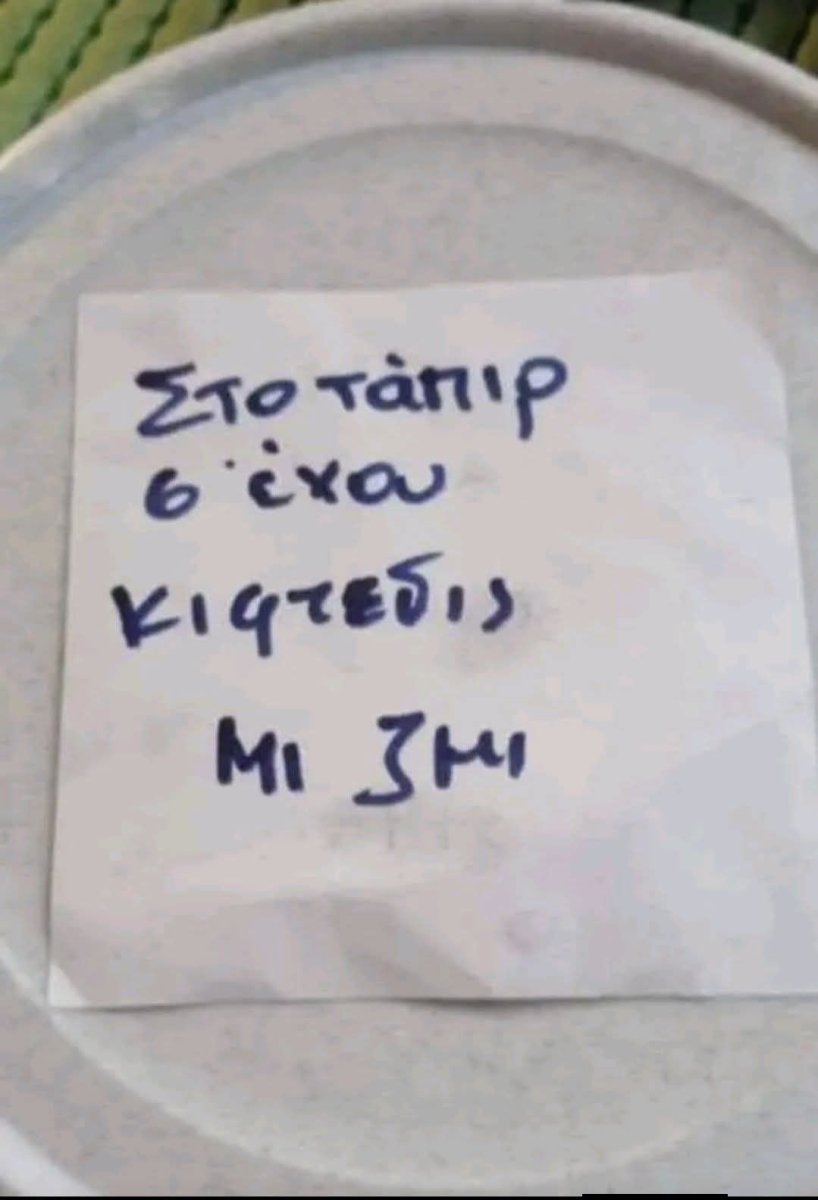 Στο τάπιρ
σ' έχου
κιφτεδις
μι ζμι